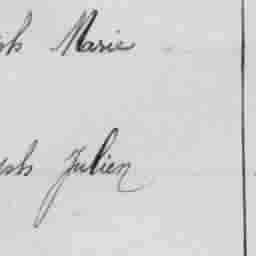 ph Marie
eph Julien